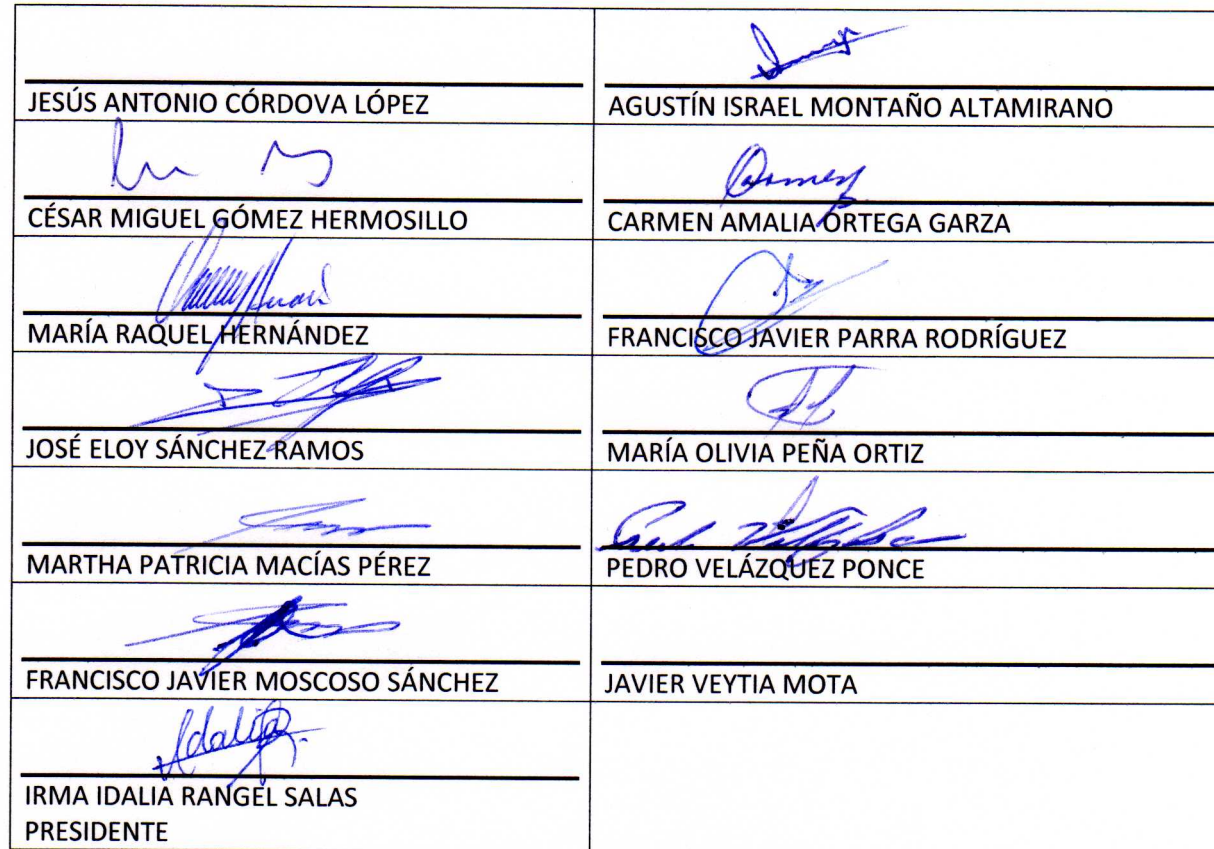 JESÚS ANTONIO CÓRDOVA LÓPEZ
AGUSTÍN ISRAEL MONTAÑO ALTAMIRANO
CÉSAR MIGUEL GÓMEZ HERMOSILLO
CARMEN AMALIA ORTEGA GARZA
MARÍA RAQUEL HERNÁNDEZ
FRANCISCO JAVIER PARRA RODRÍGUEZ
JOSÉ ELOY SÁNCHEZ RAMOS
MARÍA OLIVIA PEÑA ORTIZ
MARTHA PATRICIA MACÍAS PÉREZ
PEDRO VELÁZQUEZ PONCE
FRANCISCO JAVIER MOSCOSO SÁNCHEZ
JAVIER VEYTIA MOTA
IRMA IDALIA RANGEL SALAS
PRESIDENTE